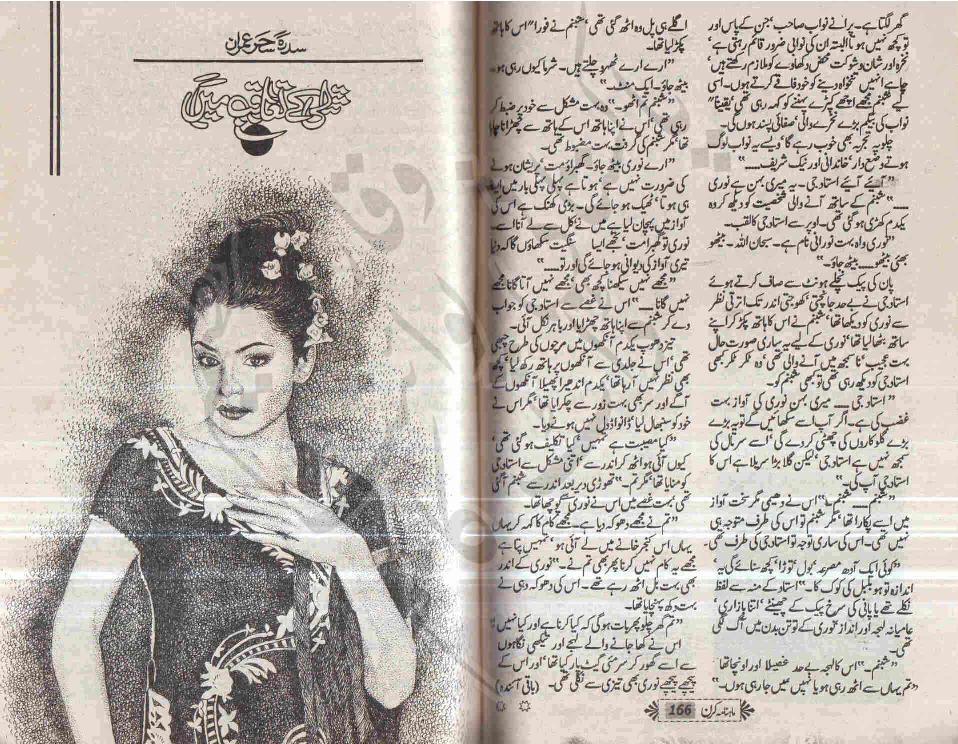 سدرۃ سحر عمران
گھر لگتا ہے۔ پرانے نواب صاحب، جن کے پاس اور
تو کچھ نہیں ہوتا البتہ ان کی نوابی ضرور قائم رہتی ہے،
نخرہ اور شان و شوکت محض دکھاوے کو ملازم رکھتے ہیں،
چاہے انہیں تنخواہ دینے کو خود فاقے کرتے ہوں۔ اسی
لیے شبنم مجھے اچھے کپڑے پہننے کو کہہ رہی تھی، یقیناً"
نواب کی بیگم بڑے نخرے والی، صفائی پسند ہوں گی۔
چلو یہ تجربہ بھی خوب رہے گا، ویسے یہ نواب لوگ
ہوتے وضع دار، خاندانی اور نیک شریف....."
"آئیے آئیے استاد جی۔ یہ میری بہن ہے نوری
....." شبنم کے ساتھ آنے والی شخصیت کو دیکھ کر وہ
یکدم کھڑی ہو گئی تھی۔ اوپر سے استاد جی کا لقب۔
"نوری واہ بہت نورانی نام ہے۔ سبحان اللہ۔ بیٹھو
بھئی بیٹھو..... بیٹھ جاؤ۔"
پان کی پیک نچلے ہونٹ سے صاف کرتے ہوئے
استاد جی نے بے حد جانچتی، کھوجتی اندر تک اترتی نظر
سے نوری کو دیکھا تھا، شبنم نے اس کا ہاتھ پکڑ کر اپنے
ساتھ بٹھا لیا تھا، نوری کے لیے یہ ساری صورت حال
بہت عجیب، نا سمجھ میں آنے والی تھی، وہ ٹکر ٹکر کبھی
استاد جی کو دیکھ رہی تھی تو کبھی شبنم کو۔
"استاد جی.... میری بس نوری کی آواز بہت
غضب کی ہے۔ اگر آپ اسے سکھائیں گے تو یہ بڑے
بڑے گلوکاروں کی چھٹی کر دے گی، اسے سر تال کی
سمجھ نہیں ہے استاد جی لیکن گلا بڑا سریلا ہے اس کا
استاد جی آپ کی۔"
"شبنم..... شبنم۔" اس نے دھیمی مگر سخت آواز
میں اسے پکارا تھا، مگر شبنم تو اس کی طرف متوجہ ہی
نہیں تھی۔ اس کی ساری توجہ تو استاد جی کی طرف تھی۔
"کوئی ایک آدھ مصرعہ، بول، توڑا، کچھ سنائے گی یہ،
اندازہ تو ہو بلبل کی کوک کا۔" استاد کے منہ سے لفظ
نکلے تھے یا پانی کی سرخ پیک کے چھینٹے، اتنا بازاری،
عامیانہ لہجہ اور انداز، نوری کے تو تن بدن میں آگ لگی
تھی۔
"شبنم۔" اس کا لہجہ بے حد غصیلا اور اونچا تھا
"تم یہاں سے اٹھ رہی ہو یا نہیں میں جا رہی ہوں۔"
اگلے ہی پل وہ اٹھ گئی تھی، شبنم نے فوراً" اس کا ہاتھ
پکڑ لیا تھا۔
"ارے ارے ٹھہرو چلتے ہیں۔ شرما کیوں رہی ہو۔
بیٹھ جاؤ۔ ایک منٹ۔"
"شبنم تم اٹھو۔" وہ بہت مشکل سے خود پر ضبط کر
رہی تھی، اس نے اپنا ہاتھ اس کے ہاتھ سے چھڑانا چاہا
تھا، مگر شبنم کی گرفت بہت مضبوط تھی۔
"ارے نوری بیٹھ جاؤ۔ گھبراؤ مت، پریشان ہونے
کی ضرورت نہیں ہے، ہوتا ہے پہلی پہلی بار میں ایسا
ہی ہوتا، ٹھیک ہو جائے گی۔ بڑی کھنک ہے اس کی
آواز میں پہچان لیا ہے میں نے، نکل سے لے آنا اسے۔
نوری تو گھبرا مت، تجھے ایسا سنگیت سکھاؤں گا کہ دنیا
تیری آواز کی دیوانی ہو جائے گی اور تو....."
"مجھے نہیں سیکھنا کچھ بھی، مجھے نہیں آتا گانا مجھے
نہیں گانا...." اس نے غصے سے استاد جی کو جواب
دے کر شبنم سے اپنا ہاتھ چھڑایا اور باہر نکل آئی۔
تیز دھوپ یکدم آنکھوں میں مرچوں کی طرح چبھی
تھی، اس نے جلدی سے آنکھوں پر ہاتھ رکھ لیا، کچھ
بھی نظر نہیں آ رہا تھا، یکدم اندھیرا پھیلا آنکھوں کے
آگے اور سر بھی بہت زور سے چکرایا تھا، مگر اس نے
خود کو سنبھال لیا، ڈانواڈول نہیں ہونے دیا۔
"کیا مصیبت ہے تمہیں، کیا تکلیف ہو گئی تھی،
کیوں آئی ہو اٹھ کر اندر سے، اتنی مشکل سے استاد جی
کو منایا تھا، مگر تم۔" تھوڑی دیر بعد اندر سے شبنم آئی
تھی بہت غصے میں اس نے نوری سے پوچھا تھا۔
"تم نے مجھے دھوکہ دیا ہے۔ مجھے کام کا کہہ کر یہاں
یہاں اس کنجر خانے میں لے آئی ہو، تمہیں پتا ہے
مجھے یہ کام نہیں کرنا پھر بھی تم نے۔" نوری کے اندر
بھی بہت بل اٹھ رہے تھے۔ اس کی دھوکہ دہی نے
بہت دکھ پہنچایا تھا۔
"تم گھر چلو پھر بات ہو گی کہ کیا کرنا ہے اور کیا نہیں"
اس نے کھا جانے والے لہجے اور تیکھی نگاہوں
سے اسے گھور کر سرمئی گیٹ پار کیا تھا، اور اس کے
پیچھے پیچھے نوری بھی تیزی سے نکلی تھی۔ (باقی آئندہ)
ماہنامہ کرن 166